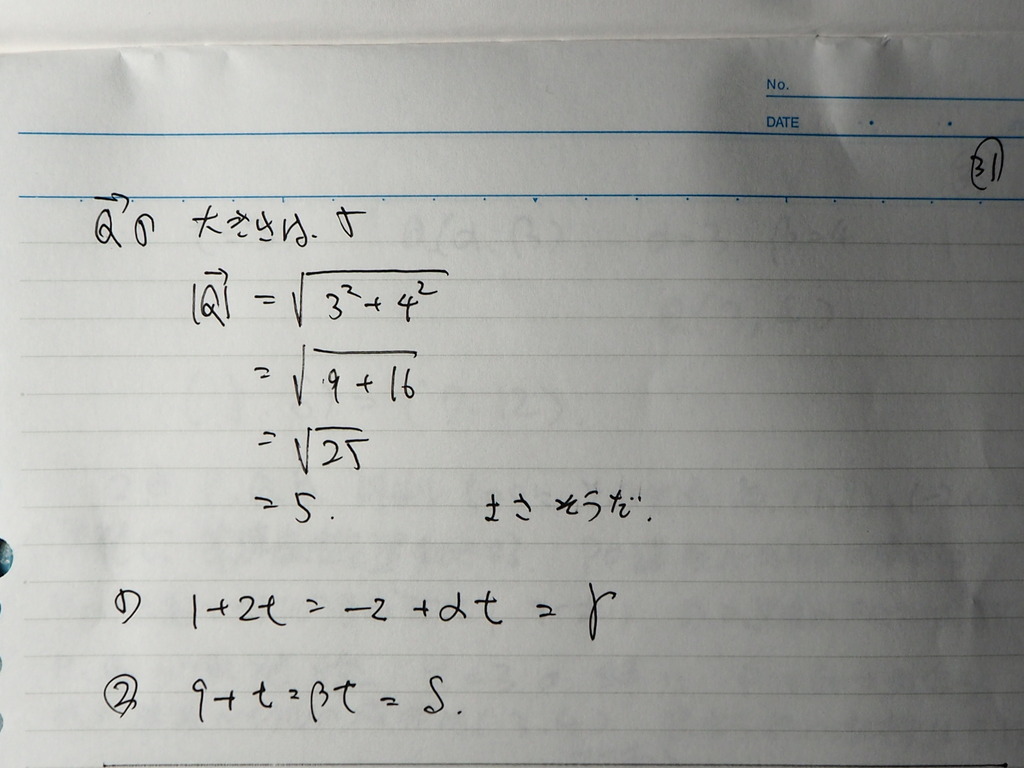 No.
DATE
31
Q⃗の 大きさは、5
|Q⃗| = √(3² + 4²)
= √(9 + 16)
= √25
= 5. よさそうだ.
① 1+2t = -2 + αt = γ
② 9+t = βt = δ.